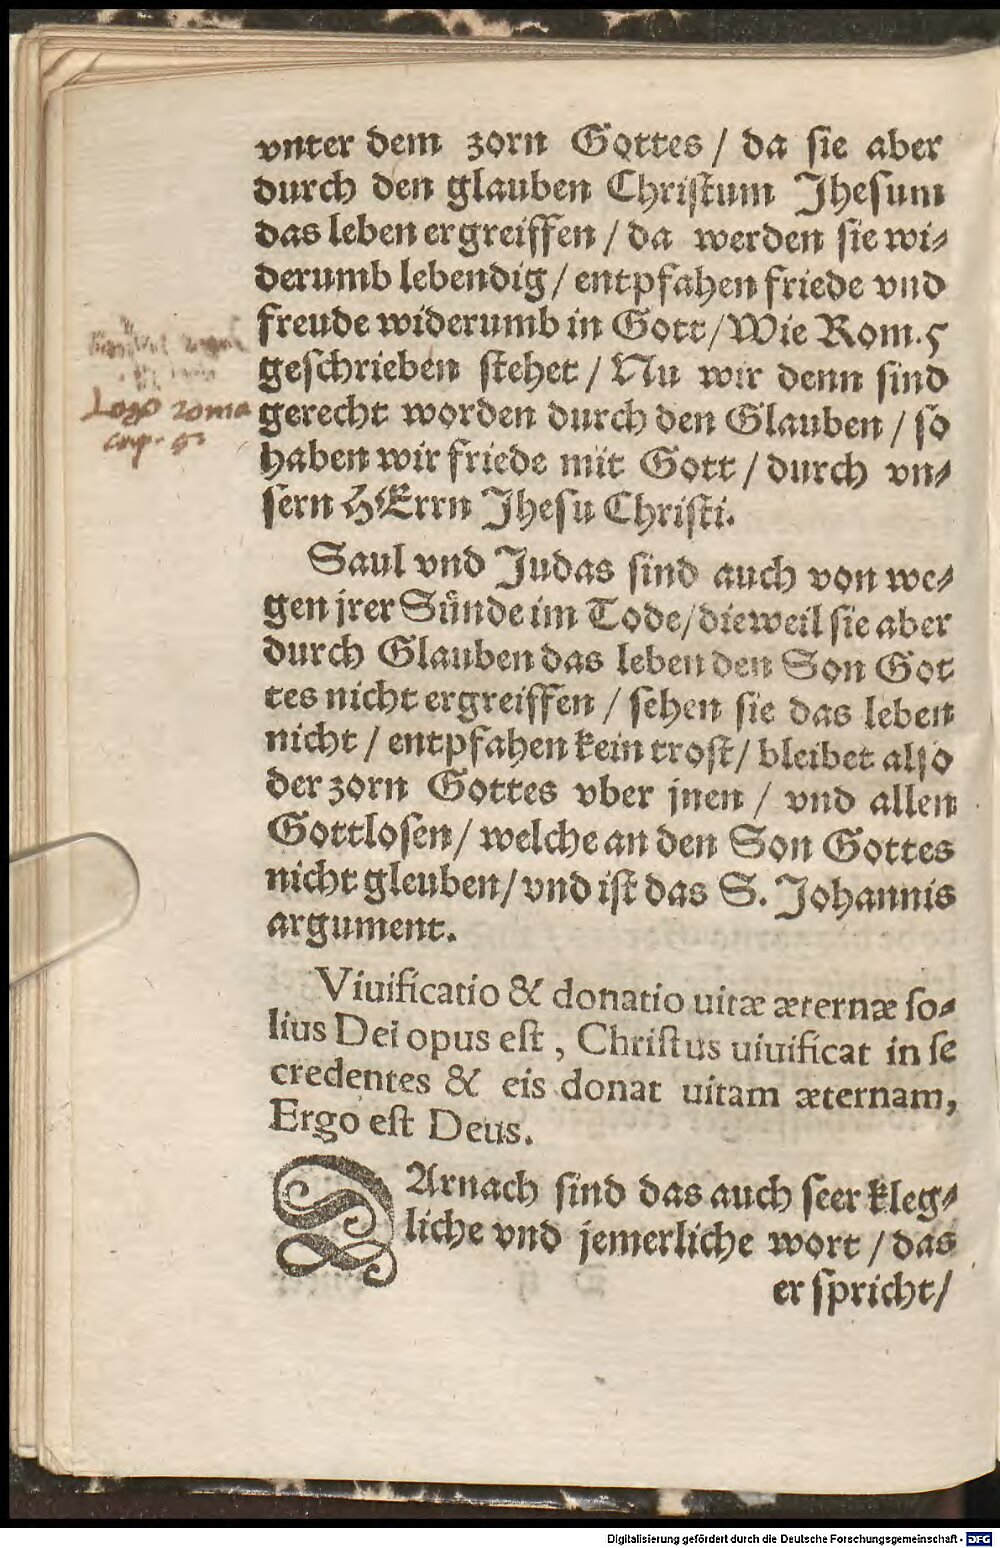 vnter dem zorn Gottes / da sie aber
durch den glauben Christum Jhesum
das leben ergreiffen / da werden sie wi⸗
derumb lebendig / entpfahen friede vnd
freude widerumb in Gott / Wie Rom. 5
geschrieben stehet / Nu wir denn sind
gerecht worden durch den Glauben / so
haben wir friede mit Gott / durch vn⸗
sern HErrn Jhesu Christi.
cap. 5
Saul vnd Judas sind auch von we⸗
gen jrer Sünde im Tode / dieweil sie aber
durch Glauben das leben den Son Got
tes nicht ergreiffen / sehen sie das leben
nicht / entpfahen kein trost / bleibet also
der zorn Gottes vber jnen / vnd allen
Gottlosen / welche an den Son Gottes
nicht gleuben / vnd ist das S. Johannis
argument.
Viuificatio & donatio uitæ æternæ so⸗
lius Dei opus est, Christus uiuificat in se
credentes & eis donat uitam æternam,
Ergo est Deus.
DArnach sind das auch seer kleg⸗
liche vnd jemerliche wort / das
er spricht /
Digitalisierung gefördert durch die Deutsche Forschungsgemeinschaft - DFG